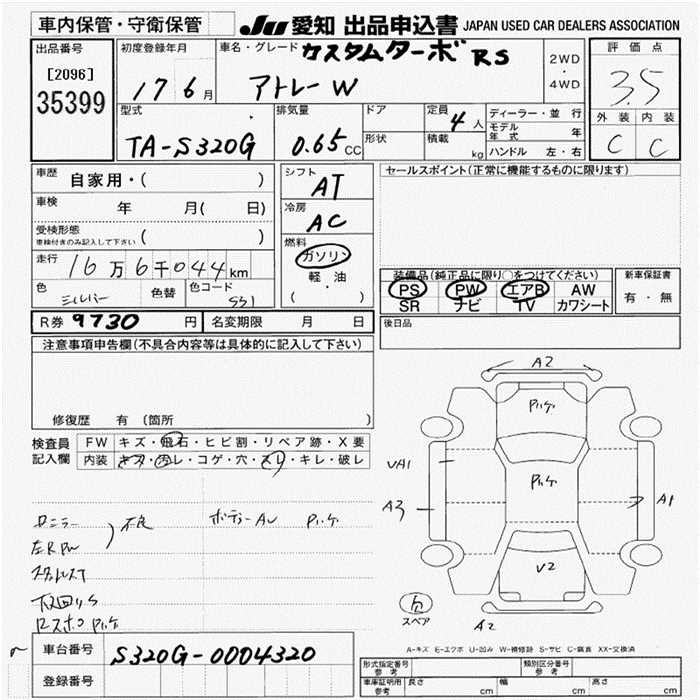 車内保管・守衛保管
JU 愛知 出品申込書 JAPAN USED CAR DEALERS ASSOCIATION
出品番号
[2096]
35399
初度登録年月
17 6月
車名・グレード カスタムターボ RS
アトレーW
2WD
・
4WD
評価点
3.5
外装 内装
C C
型式
TA-S320G
排気量
0.65 CC
ドア
形状
定員 4人
積載 kg
ディーラー・並行
モデル年式 年
ハンドル 左・右
車歴 自家用・( )
車検 年 月( 日)
受検形態
車検付きのみ記入して下さい ( )
走行 16万6千044km
色 シルバー 色替 色コード S51
シフト AT
冷房 AC
燃料
ガソリン
軽・油
( )
セールスポイント(正常に機能するものに限ります)
装備品(純正品に限り○をつけてください)
PS PW エアB AW
SR ナビ TV カワシート
新車保証書
有・無
後日品
R券 9730 円 名変期限 月 日
注意事項申告欄(不具合内容等は具体的に記入して下さい)
修復歴 有(箇所 )
検査員記入欄
FW キズ・飛石・ヒビ割・リペア跡・X要
内装 キズ・汚レ・コゲ・穴・スレ・キレ・破レ
不良
左R PW
ボディーAU
A2
UA1
A3
A1
V2
A2
スペア
A-キズ E-エクボ U-凹み W-補修跡 S-サビ C-腐食 XX-交換済
車台番号 S320G-0004320
登録番号
形式指定番号 参考
類別区分番号 参考
車庫証明用 参考 長さ cm 幅 cm 高さ cm